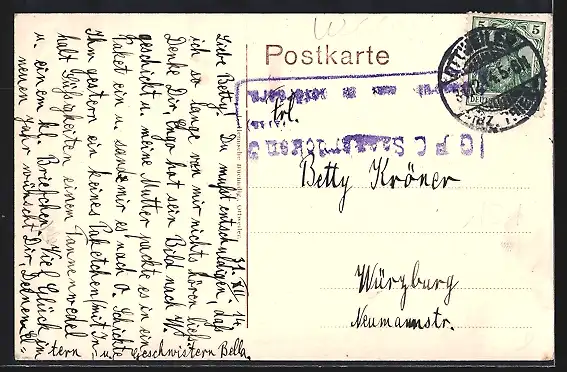 Postkarte
31. XII. 14.
Liebe Betty! Du mußt entschuldigen, daß
ich so lange von mir nichts hören ließ.
Denke Dir, Hugo hat sein Bild nach W.
geschickt u. meine Mutter packte es in ein
Paket ein u. sandte mir es nach O. Schickte
Ihm gestern ein kleines Paketchen mit
halt Süßigkeiten einen Tannenwedel
u. ein em kl. Briefchen. Viel Glück im
neuen Jahr wünscht Dir, Deinen El-
tern u. Geschwistern Bella.
Frl.
Betty Kröner
Würzburg
Neumannstr.
5
5